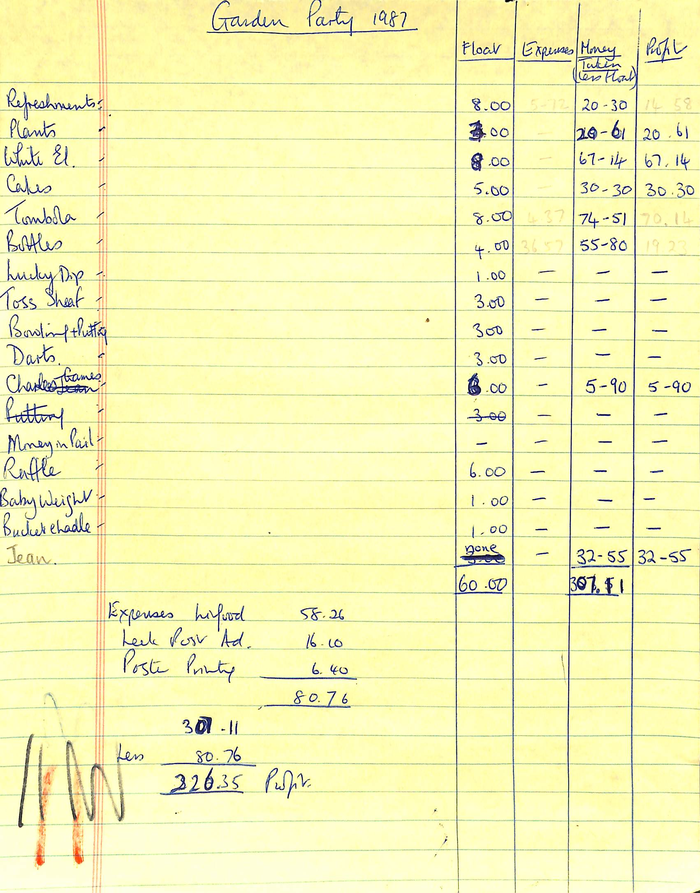 Garden Party 1987
Float Expenses Money Taken (Less Float) Profit
Refreshments 8.00 5-72 20-30 14 58
Plants 3.00 - 20-61 20.61
White El. 8.00 - 67-14 67.14
Cakes 5.00 - 30-30 30.30
Tombola 8.00 4 37 74-51 70.14
Bottles 4.00 36 57 55-80 19 23
Lucky Dip 1.00 - - -
Toss Sheaf 3.00 - - -
Bowling + Putting 300 - - -
Darts. 3.00 - - -
Charles Jean Games 6.00 - 5-90 5-90
Putting 3-00 - - -
Money in Pail - - - -
Raffle 6.00 - - -
Baby Weight 1.00 - - -
Bucket & 1.00 - - -
Jean. None - 32-55 32-55
60.00 307.11
Expenses 58.26
Leek Post Ad. 16.10
Poster Printing 6.40
80.76
307.11
Less 80.76
226.35 Profit.